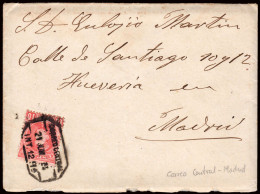 S.D. Eulojio Martin
Calle de Santiago 10 y 12
Huevería en
Madrid
Correo Central - Madrid
21 JUN